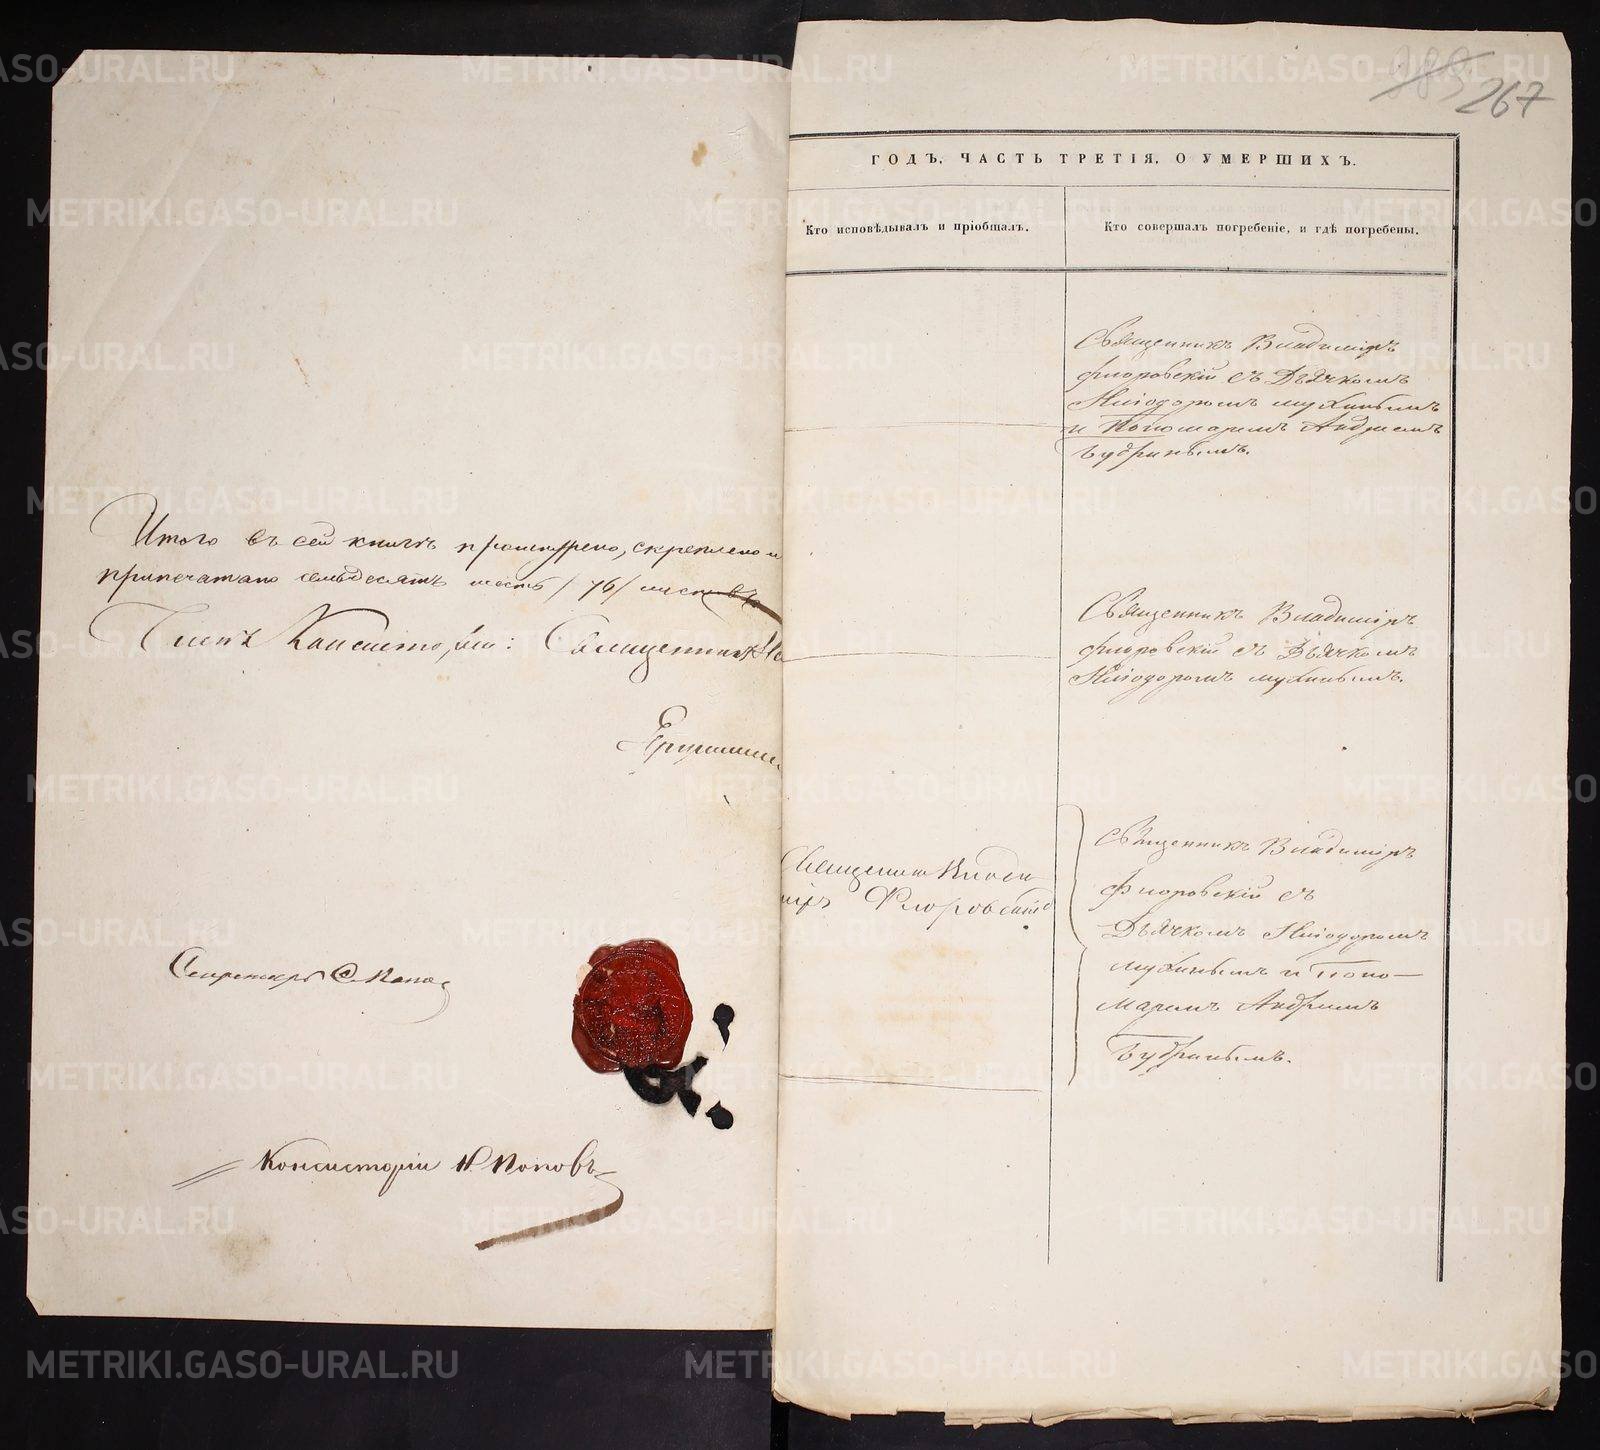 Итого въ сей книгѣ прошнурено, скреплено и
припечатано семьдесятъ шесть /76/ листовъ
Членъ Консисторіи: Священникъ
Секретарь
Консисторіи Н Поповъ
267
ГОДЪ, ЧАСТЬ ТРЕТІЯ, О УМЕРШИХЪ.
Кто исповѣдывалъ и пріобщалъ.
Кто совершалъ погребеніе, и гдѣ погребены.
Священникъ Владиміръ
Флоровскій съ Дьячкомъ
Иліодоромъ Мухинымъ
и Пономаремъ Андреемъ
Будринымъ.
Священникъ Владиміръ
Флоровскій съ Дьячкомъ
Иліодоромъ Мухинымъ.
Священник Влади
міръ Флоровскій
Священникъ Владиміръ
Флоровскій съ
Дьячкомъ Иліодоромъ
Мухинымъ и Поно-
маремъ Андреемъ
Будринымъ.
METRIKI.GASO-URAL.RU